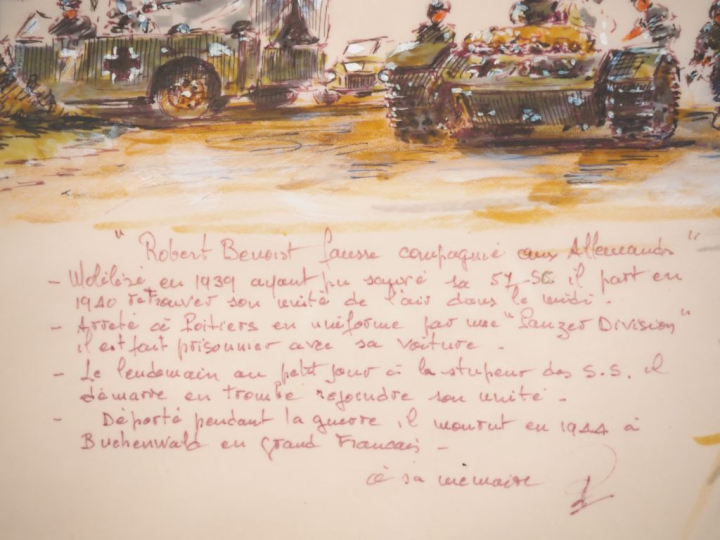 " Robert Benoist fausse compagnie aux Allemands "
- Mobilisé en 1939 ayant pu sauvé sa 57 SC il part en
1940 retrouver son unité de l'air dans le midi .
- Arreté à Poitiers en uniforme par une " Panzer Division "
il est fait prisonnier avec sa voiture .
- Le lendemain au petit jour à la stupeur des S.S. il
démarre en trombe rejoindre son unité -
- Déporté pendant la guerre il mourut en 1944 à
Buchenwald en grand Français -
à sa mémoire